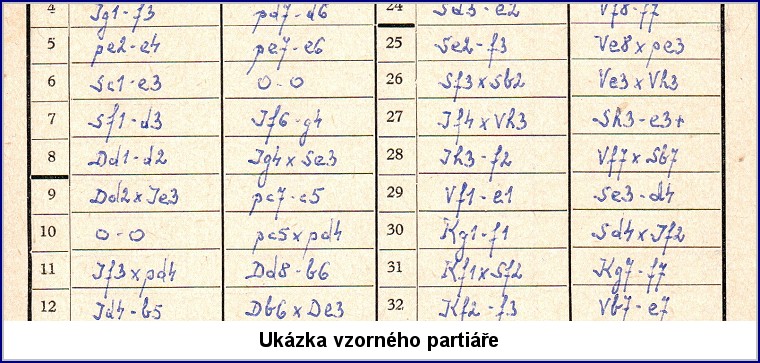 4 Jg1-f3 pd7-d6 24 Sd3-e2 Vf8-f7
5 pe2-e4 pe7-e6 25 Se2-f3 Ve8xpe3
6 Sc1-e3 0-0 26 Sf3xSb2 Ve3xVh3
7 Sf1-d3 Jf6-g4 27 Jf4xVh3 Sh3-e3+
8 Dd1-d2 Jg4xSe3 28 Jh3-f2 Vf7xSb7
9 Dd2xJe3 pc7-c5 29 Vf1-e1 Se3-d4
10 0-0 pc5xpd4 30 Kg1-f1 Sd4xJf2
11 Jf3xpd4 Dd8-b6 31 Kf1xSf2 Kg7-f7
12 Jd4-b5 Db6xDe3 32 Kf2-f3 Vb7-e7
Ukázka vzorného partiáře